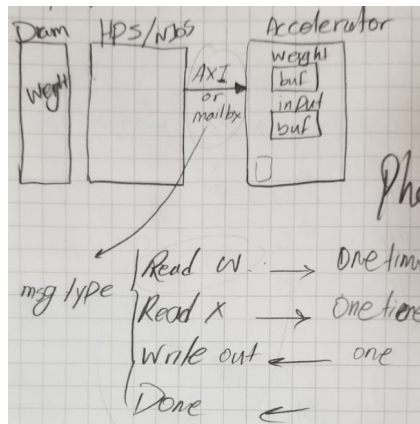 Dram HPS/NIOS Accelerator
Weight
AXI
or
mailbx
weight
buf
input
buf
msg type
Read W → One time
Read X → One time
Write out ← one
Done ←